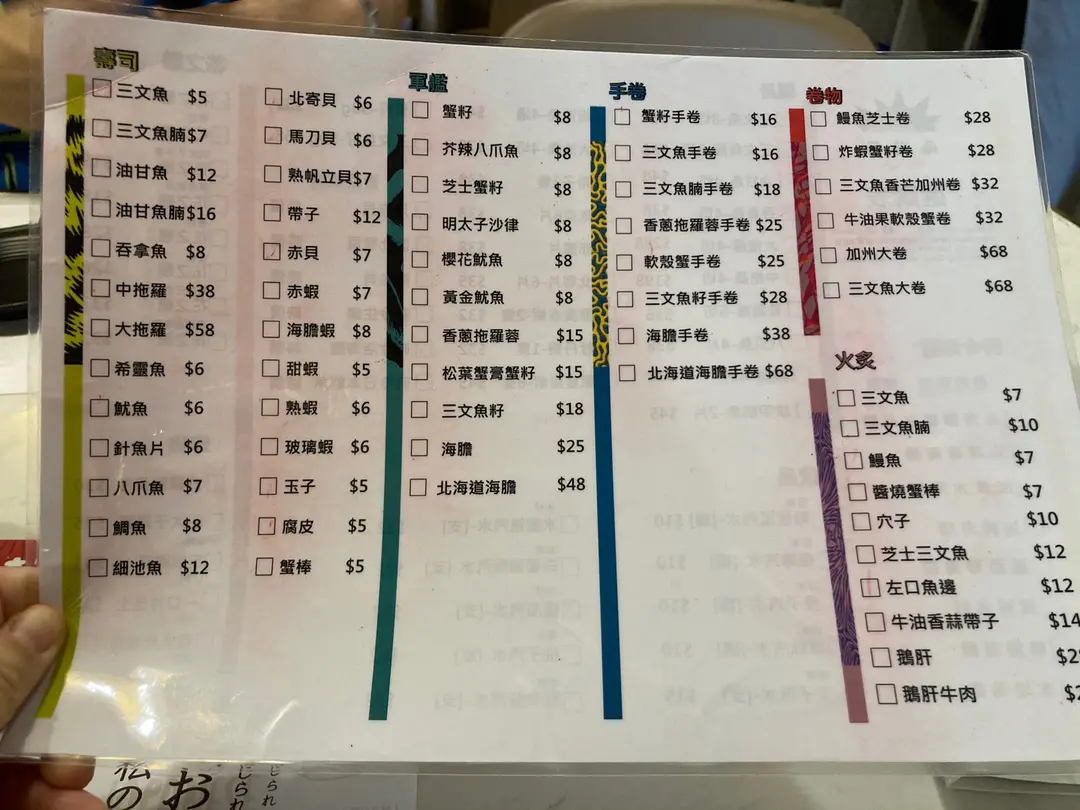 壽司
三文魚 $5
三文魚腩 $7
油甘魚 $12
油甘魚腩 $16
吞拿魚 $8
中拖羅 $38
大拖羅 $58
希靈魚 $6
魷魚 $6
針魚片 $6
八爪魚 $7
鯛魚 $8
細池魚 $12
北寄貝 $6
馬刀貝 $6
熟帆立貝 $7
帶子 $12
赤貝 $7
赤蝦 $7
海膽蝦 $8
甜蝦 $5
熟蝦 $6
玻璃蝦 $6
玉子 $5
腐皮 $5
蟹棒 $5
軍艦
蟹籽 $8
芥辣八爪魚 $8
芝士蟹籽 $8
明太子沙律 $8
櫻花魷魚 $8
黃金魷魚 $8
香蔥拖羅蓉 $15
松葉蟹膏蟹籽 $15
三文魚籽 $18
海膽 $25
北海道海膽 $48
手卷
蟹籽手卷 $16
三文魚手卷 $16
三文魚腩手卷 $18
香蔥拖羅蓉手卷 $25
軟殼蟹手卷 $25
三文魚籽手卷 $28
海膽手卷 $38
北海道海膽手卷 $68
卷物
鰻魚芝士卷 $28
炸蝦蟹籽卷 $28
三文魚香芒加州卷 $32
牛油果軟殼蟹卷 $32
加州大卷 $68
三文魚大卷 $68
火炙
三文魚 $7
三文魚腩 $10
鰻魚 $7
醬燒蟹棒 $7
穴子 $10
芝士三文魚 $12
左口魚邊 $12
牛油香蒜帶子 $14
鵝肝
鵝肝牛肉
私の
お
じられ
じられ